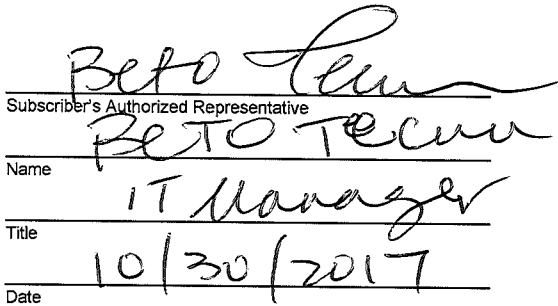 Beto
Subscriber's Authorized Representative
BETO
Name
IT Manager
Title
10/30/2017
Date